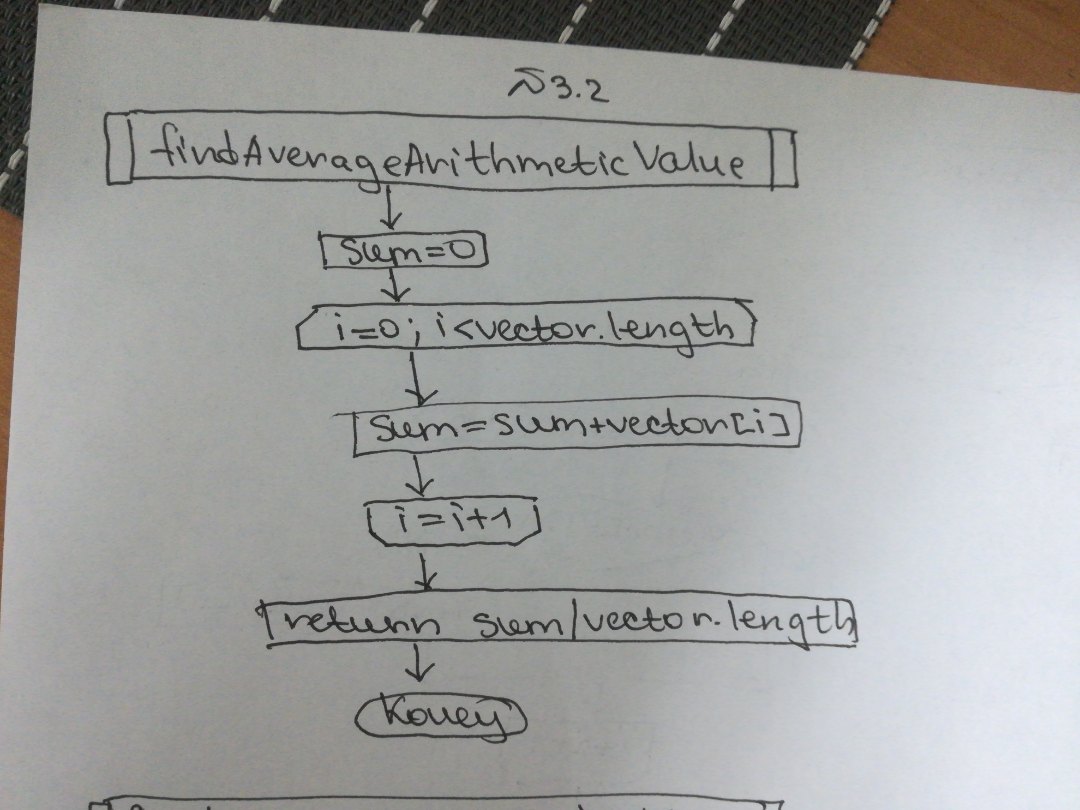 л3.2
findAverageArithmeticValue
sum=0
i=0; i<vector.length
sum=sum+vector[i]
i=i+1
return sum/vector.length
Конец